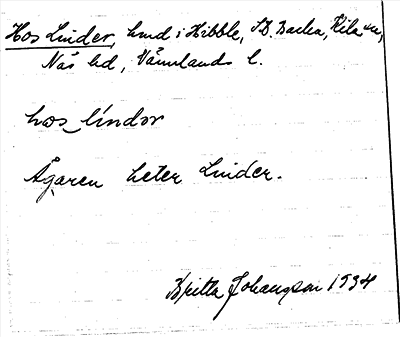 Hos Linder, hmd i Hibble, S.B. Backa, Kila sn,
Näs hd, Värmlands l.
hos líndər
Ägaren heter Linder.
Britta Johansson 1934